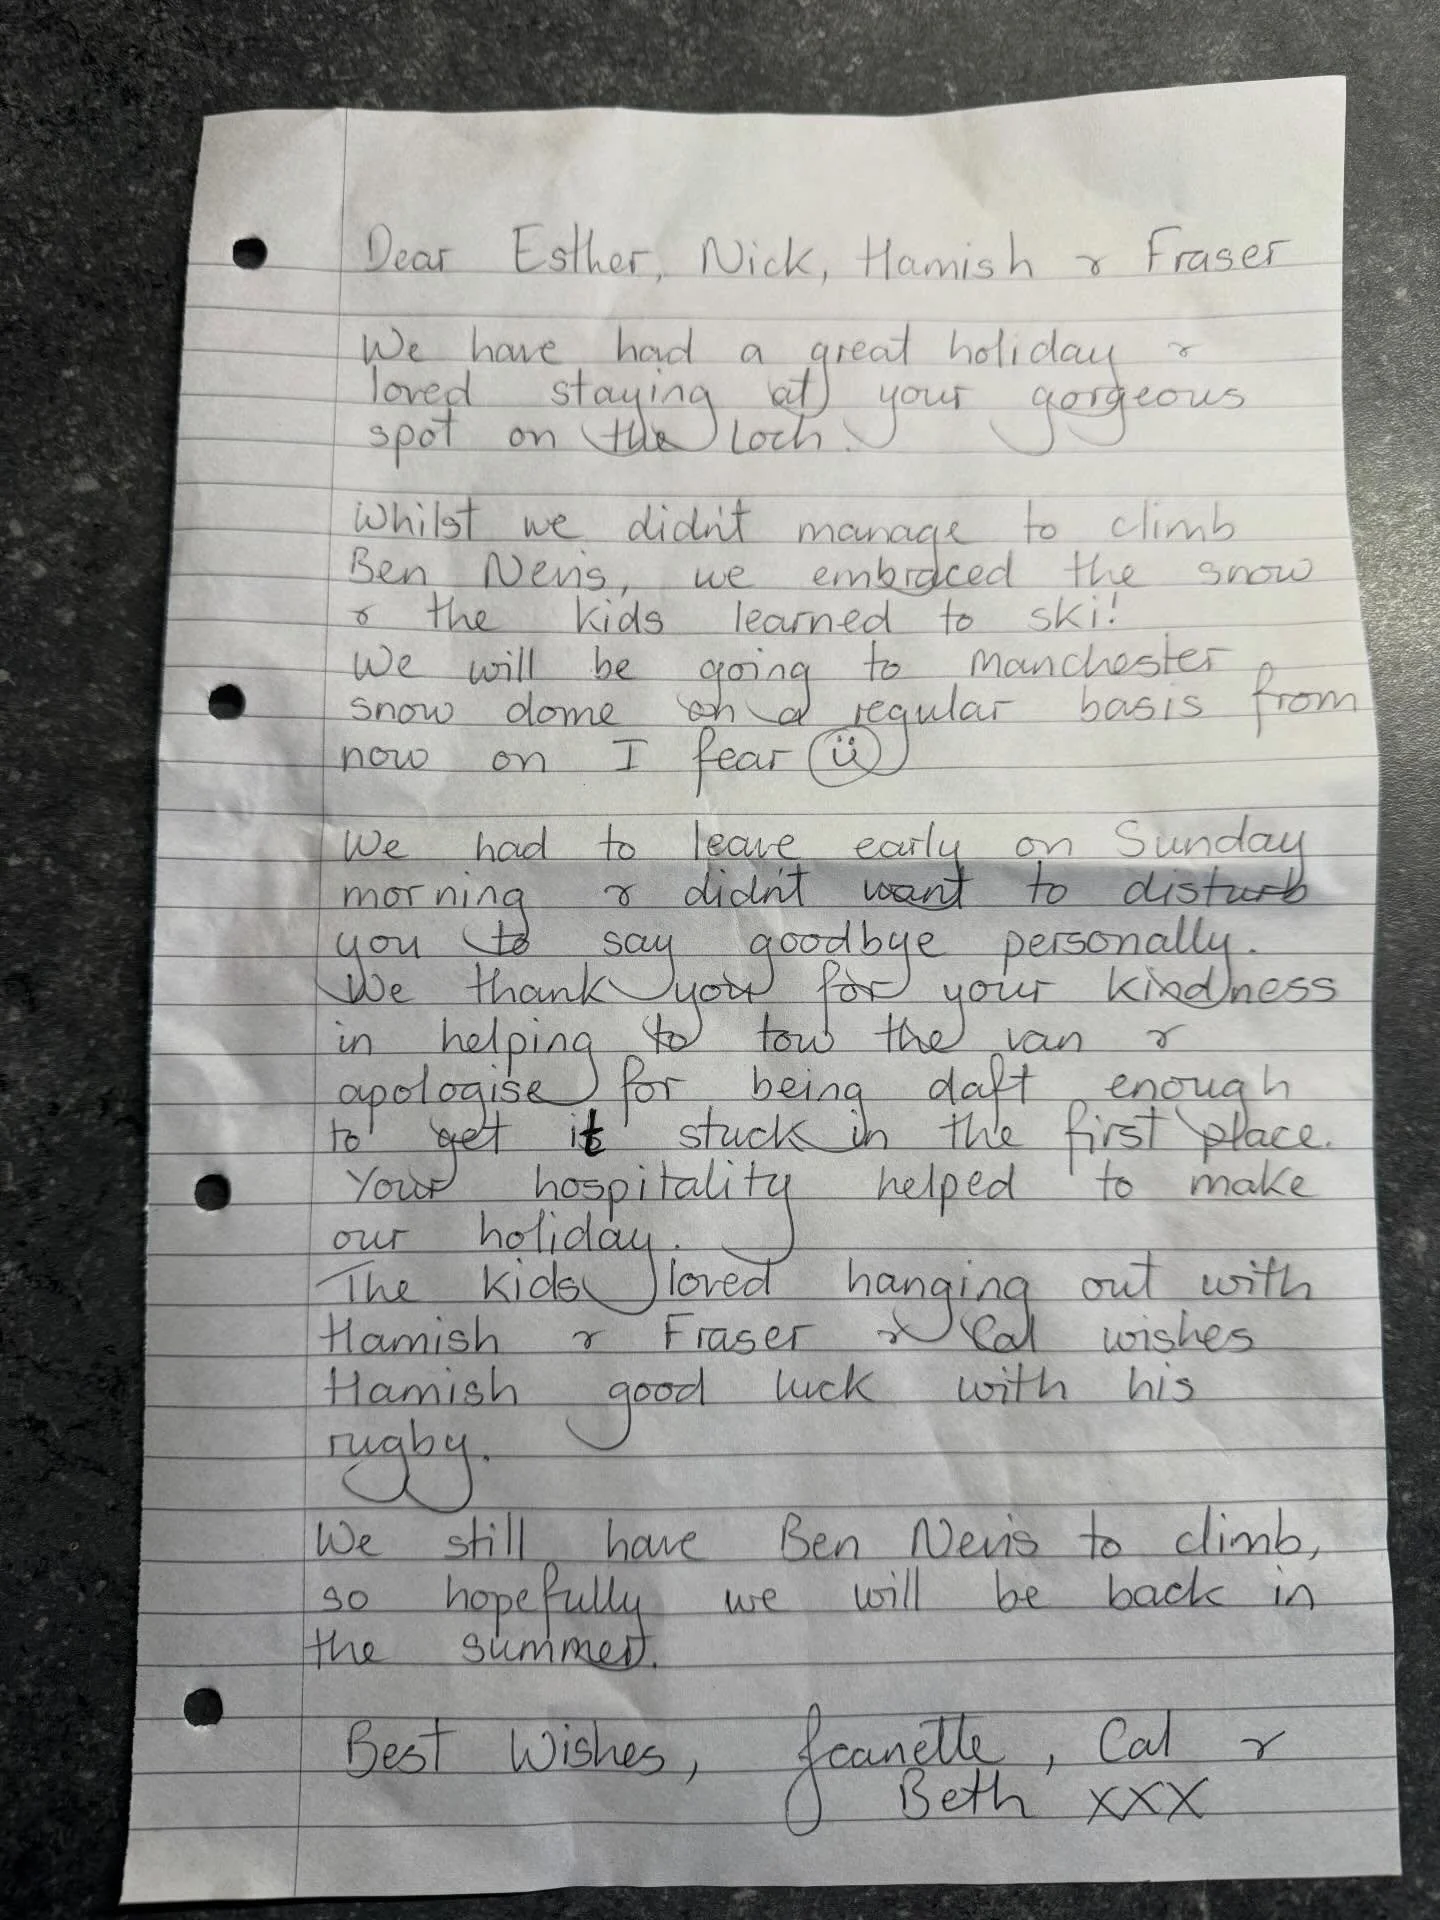 Dear Esther, Nick, Hamish & Fraser
We have had a great holiday &
loved staying at your gorgeous
spot on the Loch.
Whilst we didn't manage to climb
Ben Nevis, we embraced the snow
& the kids learned to ski!
We will be going to manchester
snow dome on a regular basis from
now on I fear ☺
We had to leave early on Sunday
morning & didn't want to disturb
you to say goodbye personally.
We thank you for your kindness
in helping to tow the van &
apologise for being daft enough
to get it stuck in the first place.
Your hospitality helped to make
our holiday.
The kids loved hanging out with
Hamish & Fraser & Cal wishes
Hamish good luck with his
rugby.
We still have Ben Nevis to climb,
so hopefully we will be back in
the summer.
Best Wishes, Jeanette, Cal &
Beth xxx